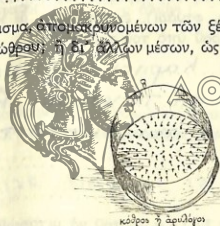 ισμα, ἀπομακρυνομένων τῶν ξέ
ώθρου; ἢ δι᾽ ἄλλων μέσων, ὡς
ΑΘ
κόθρος ἢ ἀρυλόγος